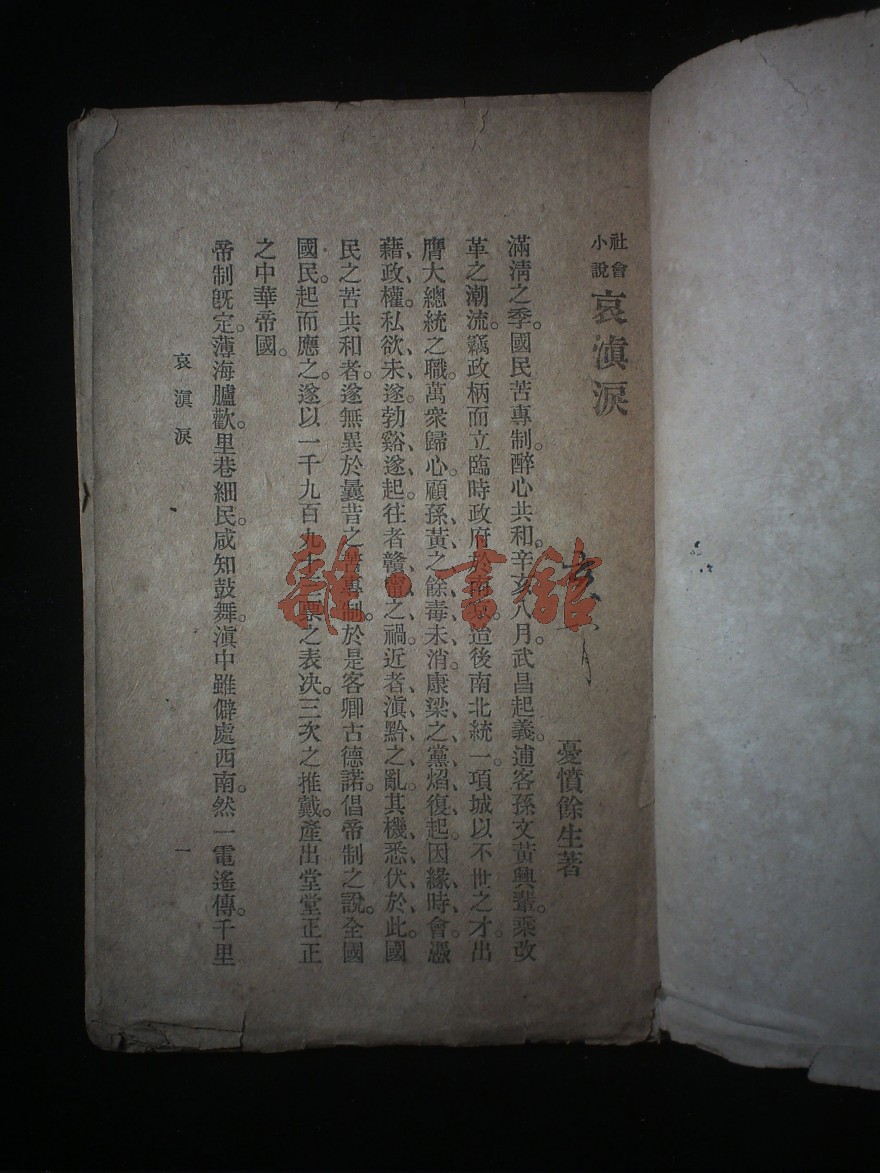 社會
小說
哀滇淚
憂憤餘生著
滿清之季。國民苦專制。醉心共和。辛亥八月。武昌起義。逋客孫文黃興輩。乘改
革之潮流。竊政柄而立臨時政府於南京。道後南北統一。項城以不世之才。出
膺大總統之職。萬衆歸心。顧孫黃之餘毒未消。康梁之黨焰復起。因緣時會。憑
藉政權。私欲未遂。勃谿遂起。往者贛甯之禍。近者滇黔之亂。其機悉伏於此。國
民之苦共和者。遂無異於曩昔之苦專制。於是客卿古德諾。倡帝制之說。全國
國民。起而應之。遂以一千九百九十三票之表決。三次之推戴。產出堂堂正正
之中華帝國。
帝制既定。薄海臚歡。里巷細民。咸知鼓舞。滇中雖僻處西南。然一電遙傳。千里
哀滇淚
一
雜·書館